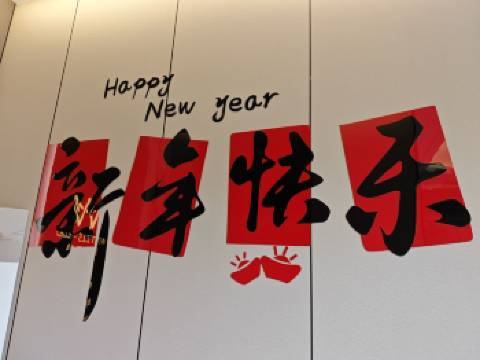 Happy
New year
新年快乐